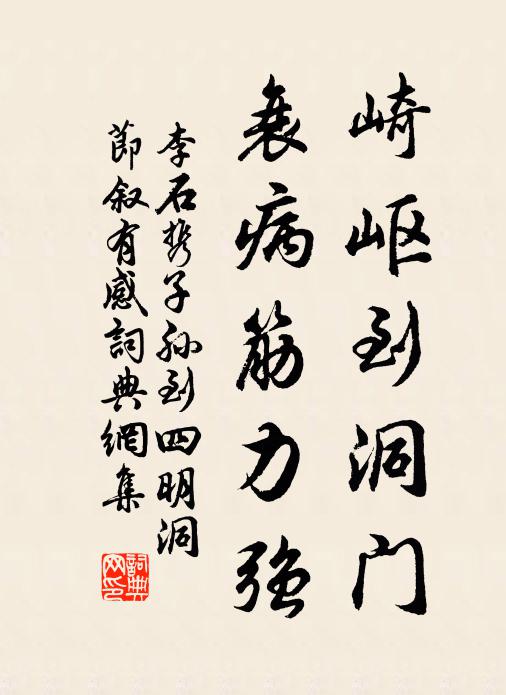 崎岖到洞门
衰病筋力强
李石携子孙到四明洞
节叙有感詞典網集
詞典网印